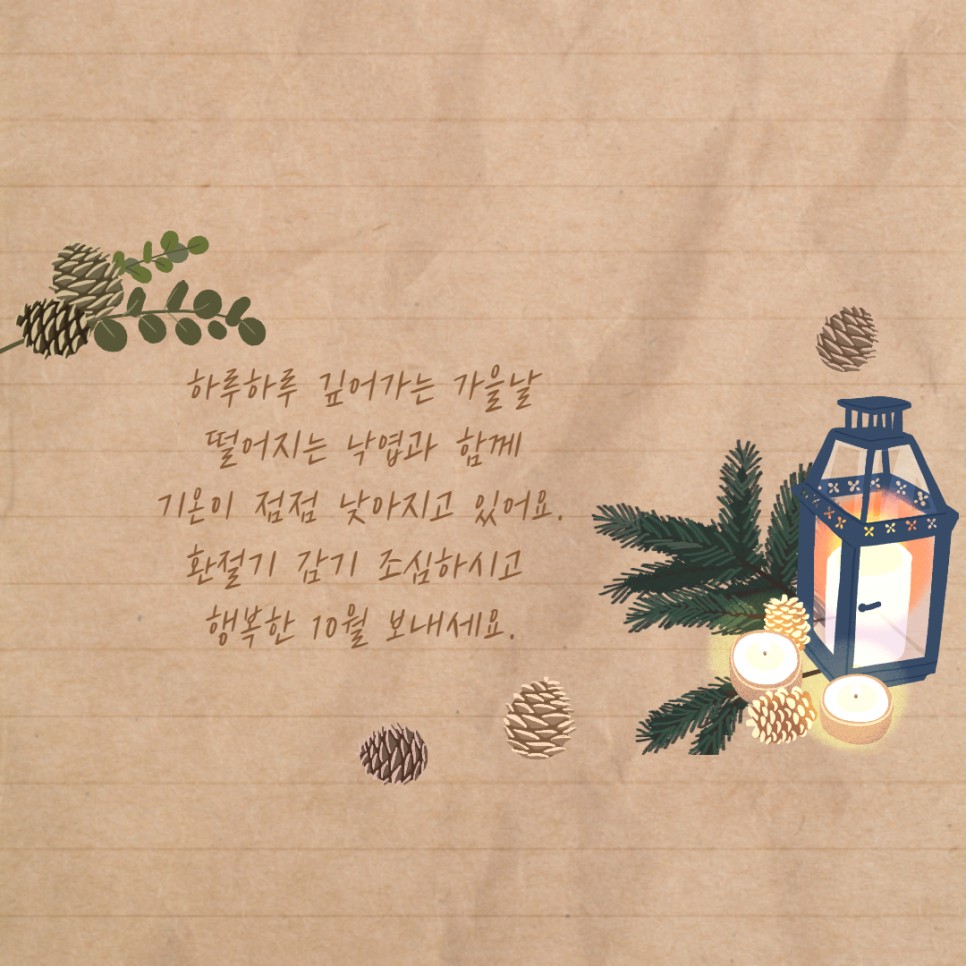 하루하루 깊어가는 가을날
떨어지는 낙엽과 함께
기온이 점점 낮아지고 있어요.
환절기 감기 조심하시고
행복한 10월 보내세요.